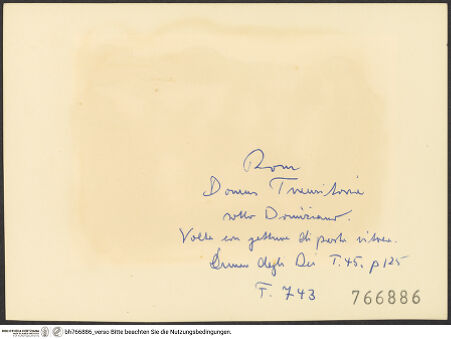 Rom
Domus Transitoria
sotto Domiziano.
Volta con gettone di pasta vitrea.
degli Dei T. 45, p 125
F. 743 766886
bh766886_verso Bitte beachten Sie die Nutzungsbedingungen.